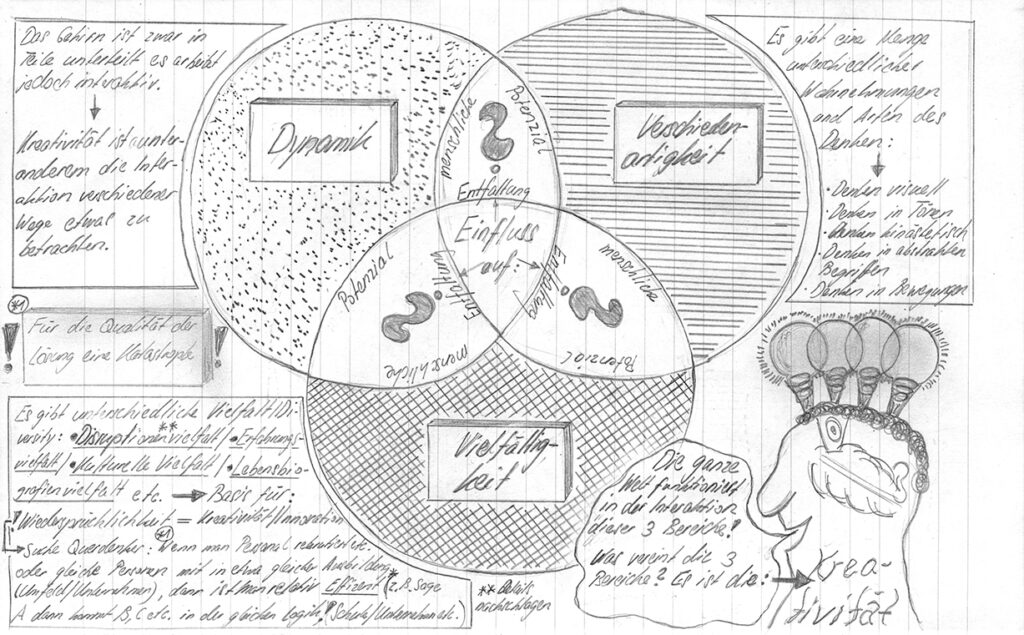 Das Gehirn ist zwar in
Teile unterteilt es arbeitet
jedoch interaktiv.
Kreativität ist unter
anderem die Inter-
aktion verschiedener
Wege etwas zu
betrachten.
Dynamik
menschliche
Potenzial
Entfaltung
Verschieden-
artigkeit
Es gibt eine Menge
unterschiedlicher
Wahrnehmungen
und Arten des
Denken:
· Denken visuell
· Denken in Tönen
· Denken kinästetisch
· Denken in abstrakten
Begriffen
· Denken in Bewegungen
Einfluss
auf:
Potenzial
Entfaltung
menschliche
menschliche
Entfaltung
Potenzial
*1
! Für die Qualität der !
Lösung eine Katastrophe
Vielfältig-
keit
Es gibt unterschiedliche Vielfalt/Di-
versity: • Disruptionenvielfalt** / • Erfahrungs-
vielfalt / • Kulturelle Vielfalt / • Lebensbio-
grafienvielfalt etc. → Basis für:
! Wiedersprüchlichkeit = Kreativität/Innovation
→ Suche Querdenker: *1 Wenn man Personal rekrutiert etc.
oder gleiche Personen mit in etwa gleicher Ausbildung
(Umfeld/Unternehmen), dann ist man relativ Effizient* (z.B. Sage
A dann kommt B, C etc. in der gleichen Logik! (Schule/Unternehmen etc.)
** Details
nachschlagen
Die ganze
Welt funktioniert
in der Interaktion
dieser 3 Bereiche!
Was vereint die 3
Bereiche? Es ist die: →
Krea-
tivität